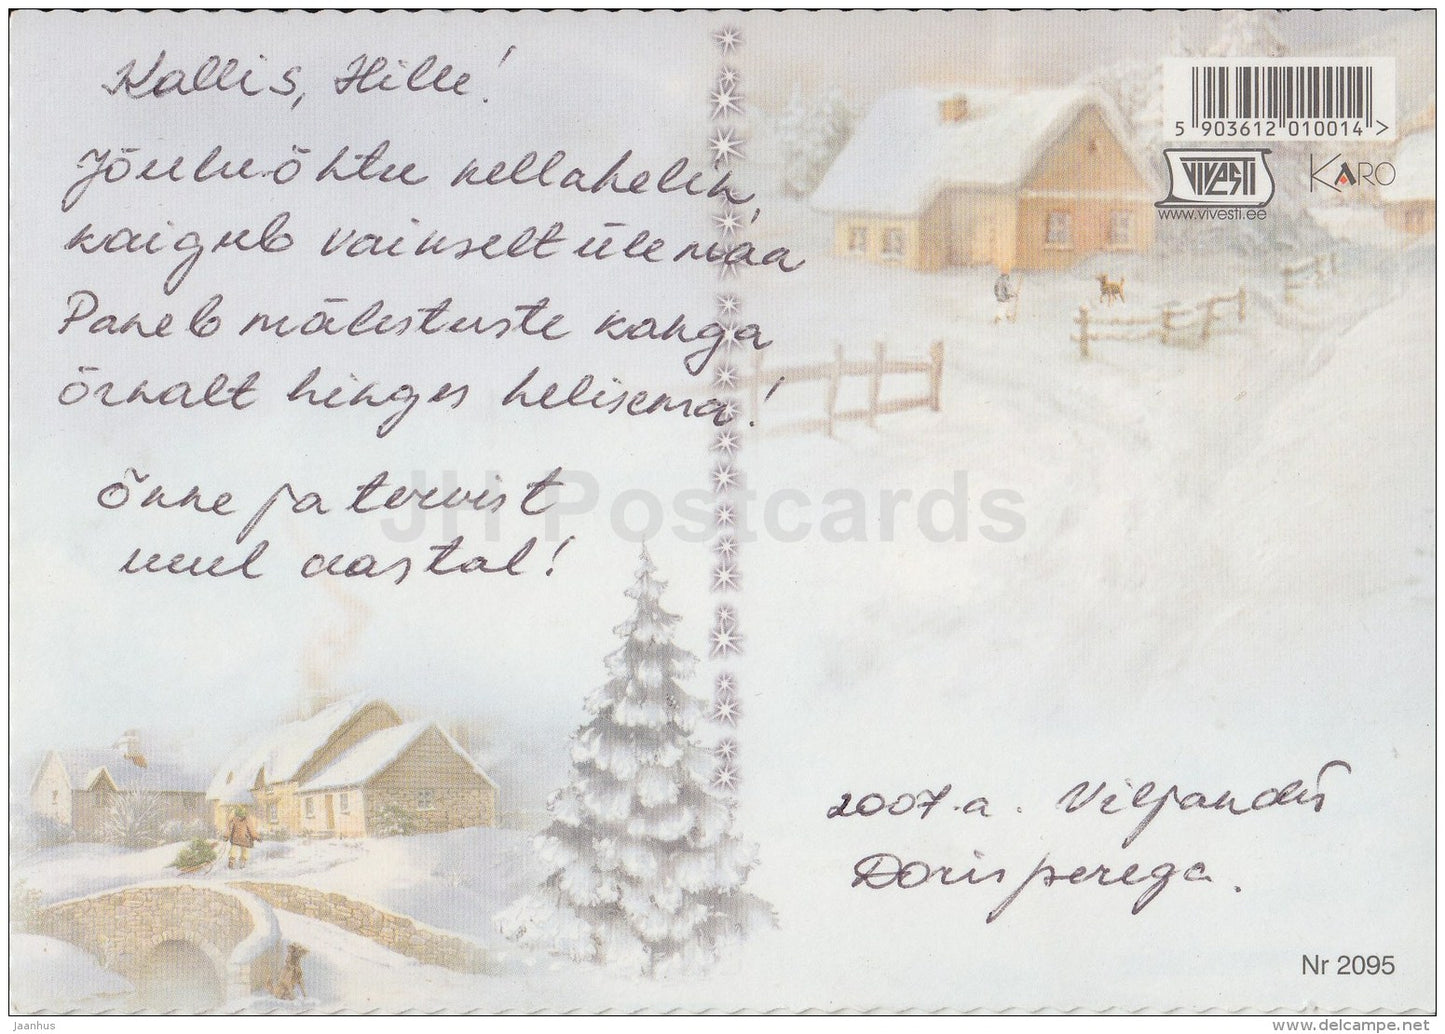 Kallis, Hille!
Jõuluõhtu kellahelin,
kaigub vaikselt üle maa
Paneb mälestuste kanga
õrnalt hinges helisema!
Õnne ja tervist
uuel aastal!
5 903612 010014 >
VIVESTI
KARO
www.vivesti.ee
JH Postcards
2007.a. Viljandis
Doris perega.
Nr 2095
jaanhus
www.delcampe.net